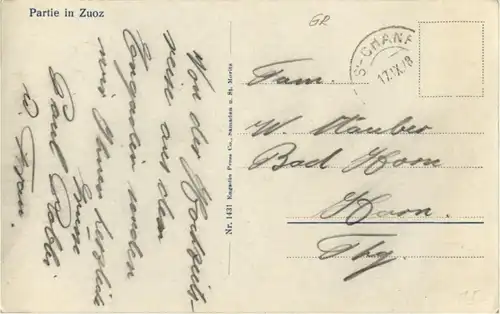 Partie in Zuoz
GR
S-CHANF
17.IX.28
Von der Hochzeits-
reise aus dem
Engadin senden
wir Ihnen herzliche
Grüsse
Paul
u. Frau.
Nr. 1431 Engadin Press Co., Samaden u. St. Moritz
Fam.
W. Stauber
Bad Horn
Horn.
Thg.